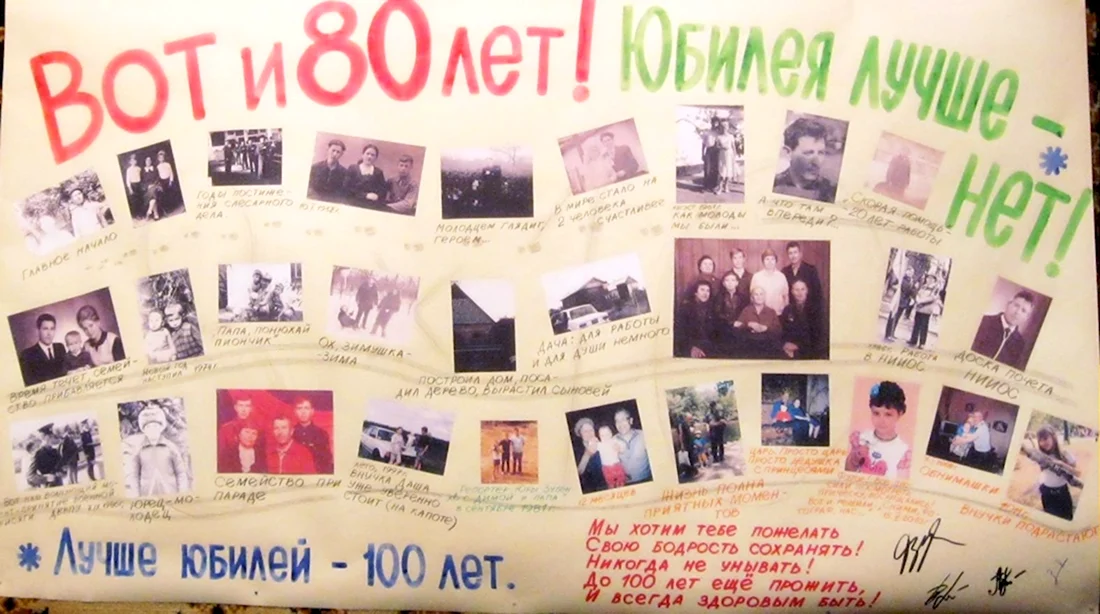 Вот и 80 лет! Юбилея лучше -
* нет!
Главное начало
Годы постиже-
ния слесарного
дела.
Молодцем глядит,
героем...
В мире стало на
2 человека
счастливее
как молоды
мы были...
А что там
впереди?
Скорая помощь-
20 лет работы
Время течёт, семей-
ство прибавляется
Новый год
наступил 1974!
Папа, понюхай
пиончик
Ох, зимушка-
-зима
Построил дом, поса-
дил дерево, вырастил сыновей
Дача: для работы
и для души немного
работа
в НИИОС
Доска почёта
НИИОС
Юрец-мо-
лодец
Семейство при
параде
Лето, 1997г.
Внучка Даша
уже уверенно
стоит (на капоте)
с Димой и папа
в сентябре 1981г.
месяцев
Жизнь полна
приятных момен-
тов
Царь, просто царь
просто дедушка
с принцессами
Обнимашки
Внучки подрастают
* Лучше юбилей - 100 лет.
Мы хотим тебе пожелать
Свою бодрость сохранять!
Никогда не унывать!
До 100 лет ещё прожить,
И всегда здоровым быть!